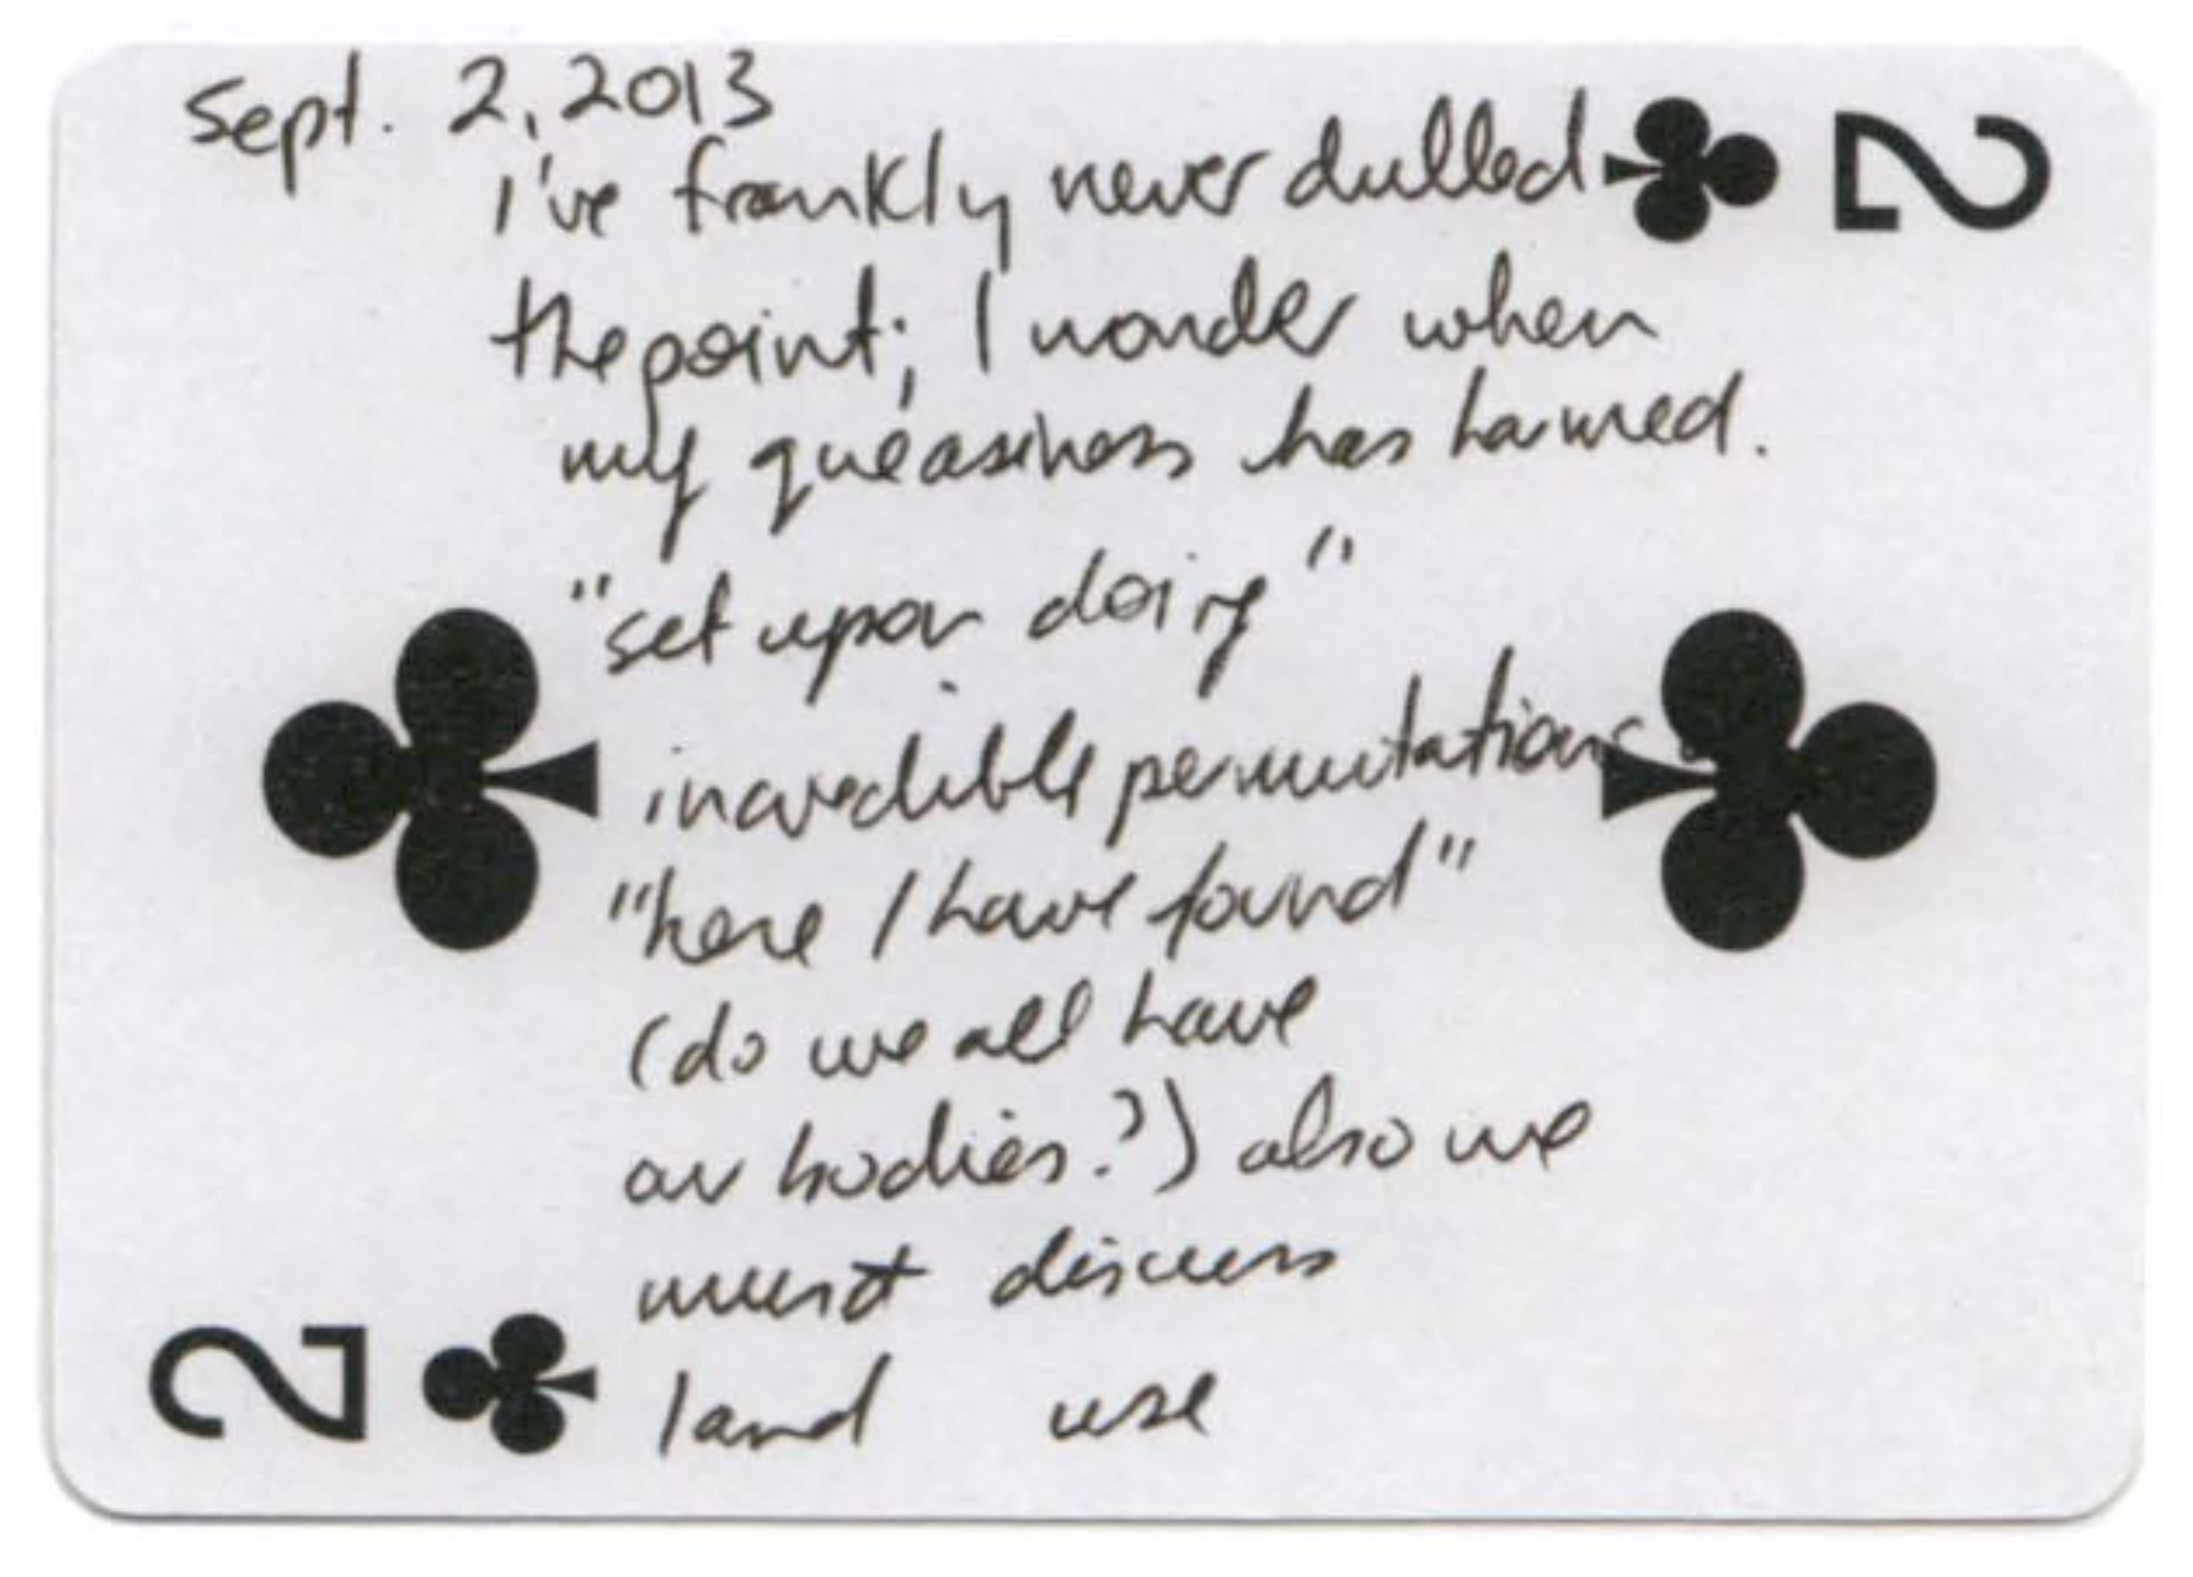 Sept. 2, 2013
I've frankly never dulled
the point; I wonder when
my queasiness has harmed.
"set upon doing"
incredible permutations
"here I have found"
(do we all have
our bodies?) also we
must discuss
land use
2
2